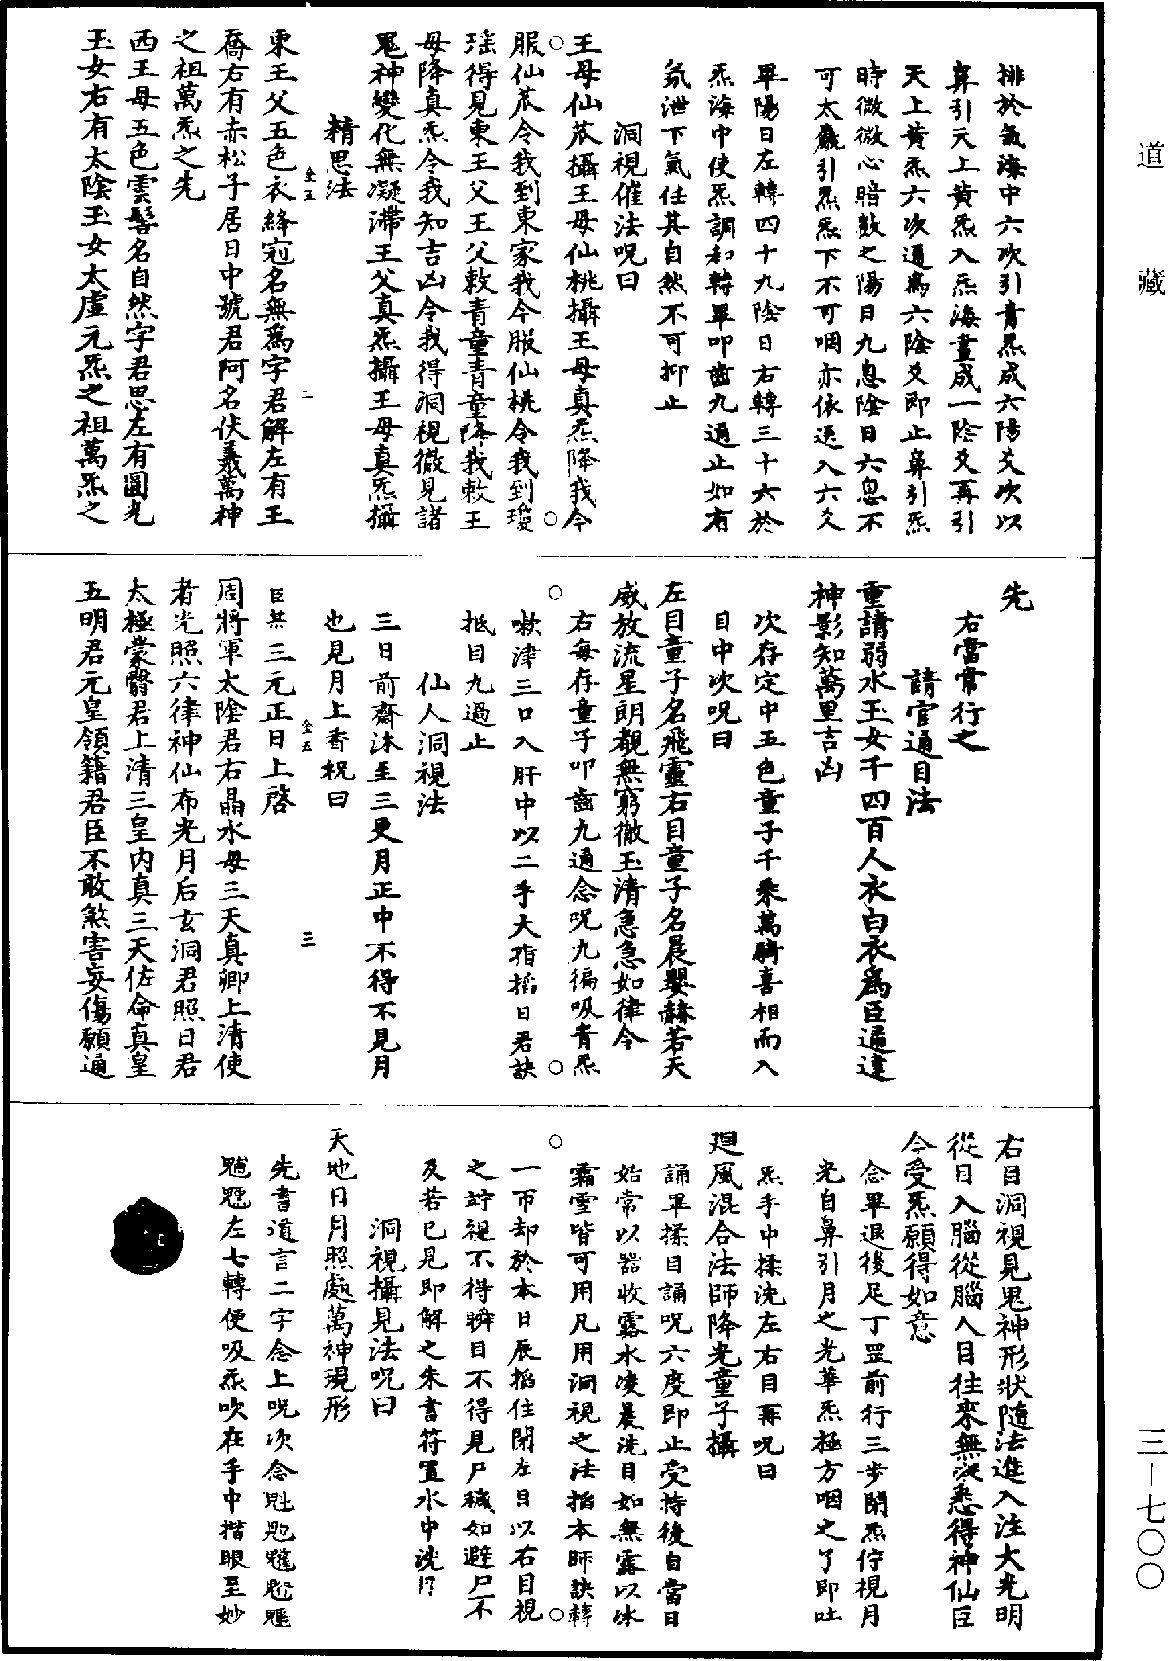 道藏
三—七〇〇
排於氣海中六次引青炁成六陽爻次以
鼻引天上黄炁入炁海畫成一陰爻再引
天上黄炁六次通為六陰爻即止鼻引炁
時微微心暗數之陽日九息陰日六息不
可太麤引炁炁下不可咽亦依送入六爻
畢陽日左轉四十九陰日右轉三十六於
炁海中使炁調和轉畢叩齒九通止如有
氣泄下氣任其自然不可抑止
洞視催法呪曰
王母仙苽攝王母仙桃攝王母真炁降我令
服仙苽令我到東家我今服仙桃令我到瓊
瑤得見東王父王父敕青童青童降我敕王
母降真炁令我知吉凶令我得洞視徹見諸
鬼神變化無凝滯王父真炁攝王母真炁攝
精思法
東王父五色衣絳冠名無為字君解左有王
喬右有赤松子居日中號君阿名伏羲萬神
之祖萬炁之先
西王母五色雲髻名自然字君思左有圓光
玉女右有太陰玉女太虛元炁之祖萬炁之
先
右當常行之
請官通目法
重請弱水玉女千四百人衣白衣為臣通達
神影知萬里吉凶
次存定中五色童子千乘萬騎喜相而入
目中次呪曰
左目童子名飛靈右目童子名晨嬰赫若天
威放流星朗覩無窮徹玉清急急如律令
右每存童子叩齒九通念呪九徧吸青炁
嗽津三口入肝中以二手大指掐日君訣
抵目九過止
仙人洞視法
三日前齋沐至三更月正中不得不見月
也見月上香祝曰
臣某三元正日上啓
周將軍太陰君右晶水母三天真卿上清使
者光照六律神仙布光月后玄洞君照日君
太極蒙翳君上清三皇内真三天佐命真皇
五明君元皇領籍君臣不敢煞害妄傷願通
右目洞視見鬼神形狀隨法進入注大光明
從目入腦從腦入目往來無次悉得神仙臣
今受炁願得如意
念畢退後足丁罡前行三步閉炁佇視月
光自鼻引月之光華炁極方咽之了即吐
炁手中揉洗左右目再呪曰
廻風混合法師降光童子攝
誦畢揉目誦呪六度即止受持後自當日
始常以器收露水凌晨洗目如無露以冰
霜雪皆可用凡用洞視之法掐本師訣轉
一帀却於本日辰掐住閉左目以右目視
之諦視不得瞬目不得見尸穢如避尸不
及若已見即解之朱書符置水中洗目
洞視攝見法呪曰
天地日月照處萬神現形
先書道言二字念上呪次念
左七轉便吸炁吹在手中揩眼至妙